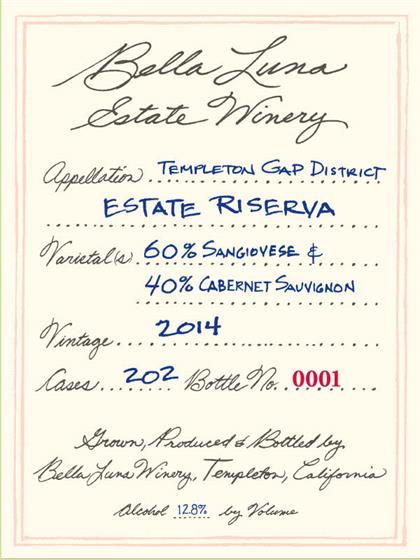 Bella Luna
Estate Winery
Appellation TEMPLETON GAP DISTRICT
ESTATE RISERVA
Varietal(s) 60% SANGIOVESE &
40% CABERNET SAUVIGNON
Vintage 2014
Cases 202 Bottle No. 0001
Grown, Produced & Bottled by
Bella Luna Winery, Templeton, California
Alcohol 12.8% by Volume